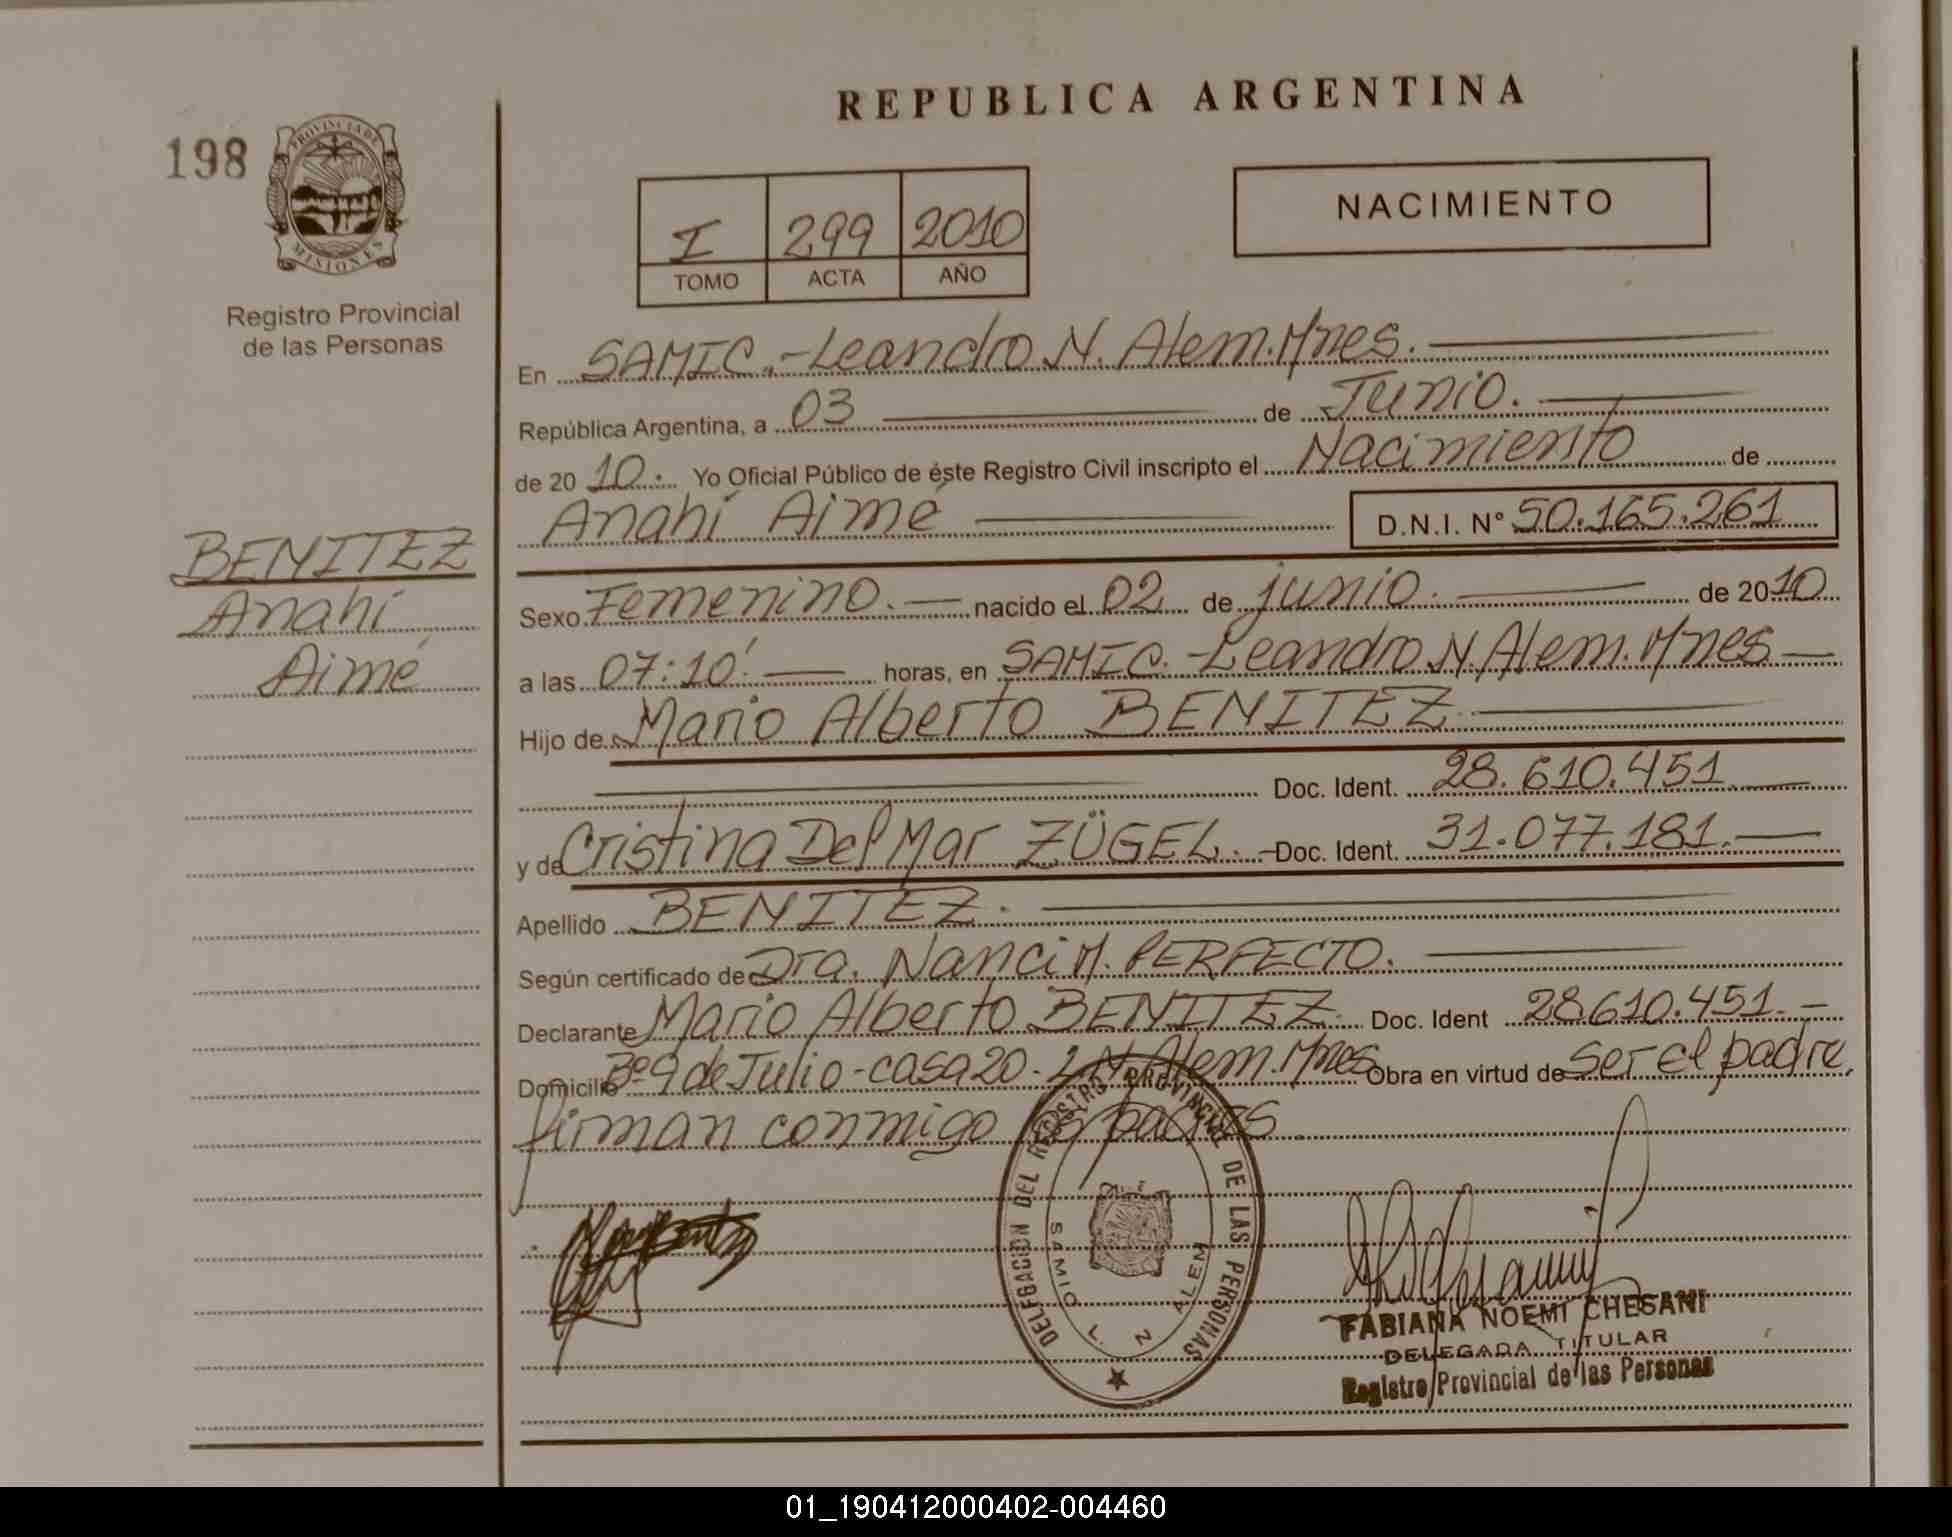 REPUBLICA ARGENTINA
198
PROVINCIA DE
MISIONES
Registro Provincial
de las Personas
I 299 2010
TOMO ACTA AÑO
NACIMIENTO
En SAMIC.-Leandro N. Alem. Mnes.
República Argentina, a 03 de Junio.
de 20 10. Yo Oficial Público de éste Registro Civil inscripto el Nacimiento de
Anahí Aimé D.N.I. N° 50.165.261
BENITEZ
Anahí
Aimé
Sexo Femenino. nacido el 02 de junio. de 20 10
a las 07:10' horas, en SAMIC.-Leandro N. Alem. Mnes
Hijo de Mario Alberto BENITEZ
Doc. Ident. 28.610.451
y de Cristina Del Mar ZÜGEL. Doc. Ident. 31.077.181.
Apellido BENITEZ.
Según certificado de Dra. Nanci M. PERFECTO.
Declarante Mario Alberto BENITEZ. Doc. Ident 28.610.451.
Domicilio Bº 9 de Julio-casa 20-L.N. Alem. Mnes Obra en virtud de ser el padre,
firman conmigo padres.
DELEGACION DEL REGISTRO PROVINCIAL DE LAS PERSONAS
SAMIC L. N. ALEM
FABIANA NOEMI CHESANI
DELEGADA TITULAR
Registro Provincial de las Personas
01_190412000402-004460